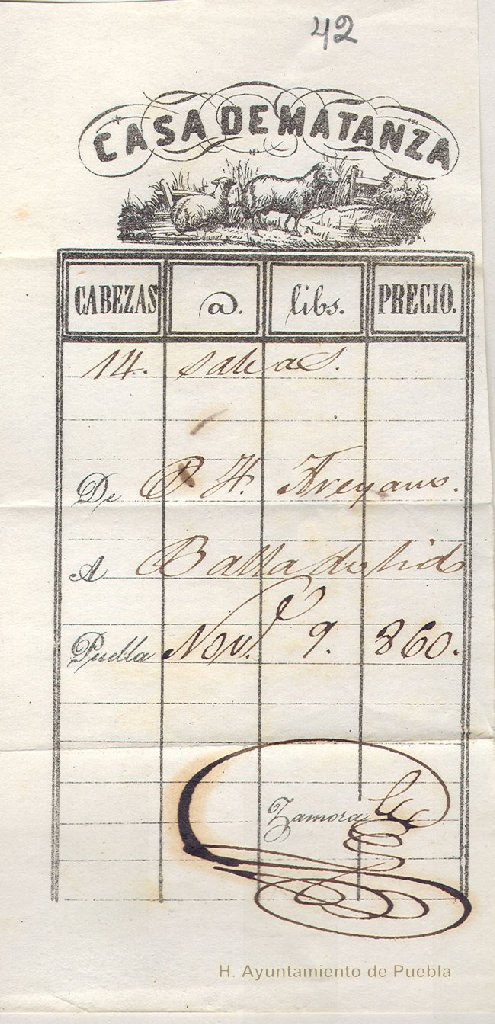 42
CASA DE MATANZA
CABEZAS @. libs. PRECIO.
14.
De P. H. Areyano.
A Balladolid
Puebla Nov.e 9. 860.
Zamora
H. Ayuntamiento de Puebla